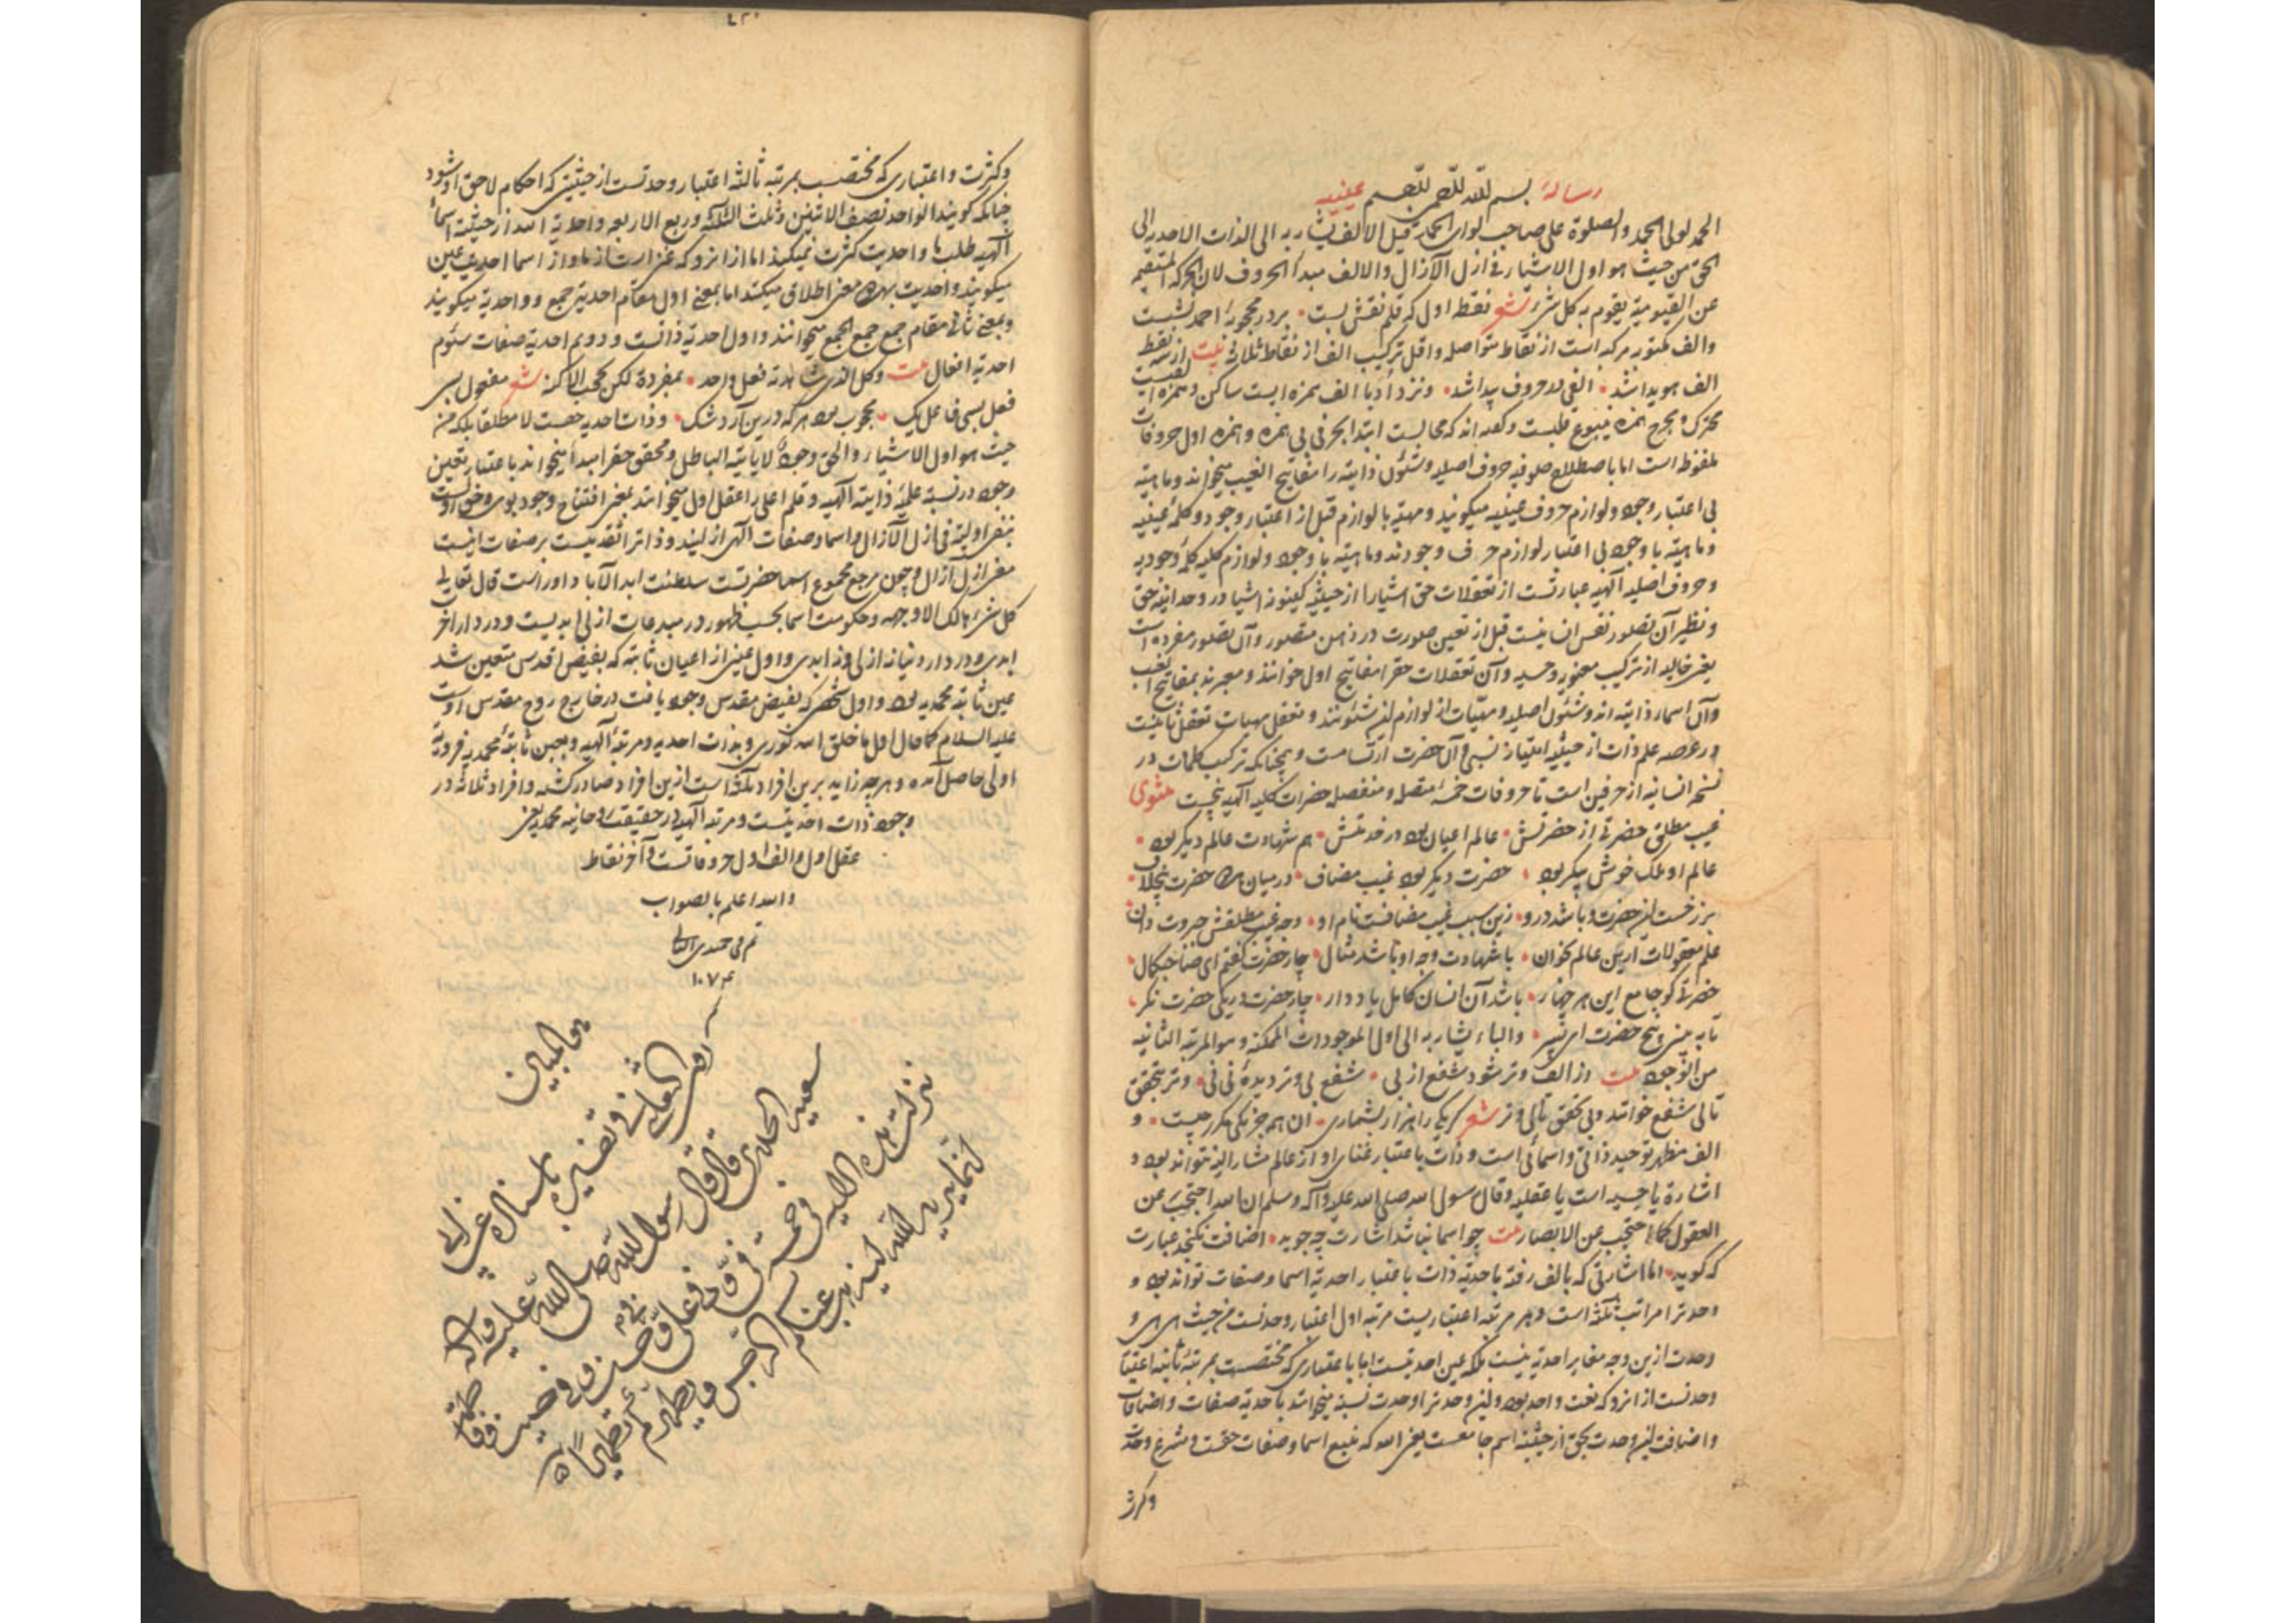 رسالهٔ بسم الله الرحمن الرحیم عینیه
الحمد لولی الحمد والصلوة علی صاحب لواء الحمد قیل الالف یشار به الی الذات الاحدیه الی
الحق من حیث هو اول الاشیاء فی ازل الآزال والالف مبدأ الحروف لان الحرکه المستقیمه
عن القیومیة یقوم به کل شیء شعر نقطه اول که قلم نقش بست • بر در محجوبهٔ احمد نشست
والف مکتوبه مرکبه است از نقاط متواصله و اقل ترکیب الف از نقاط ثلاثه بیت از سه نقطه
الف هویدا شد • الفی در حروف پیدا شد • ونزد ادبا الف همزه ایست ساکن و همزه الفیست
متحرک و مخرج همزه ینبوع قلبست و گفته اند که محالست ابتدا بحرفی بی همزه و همزه اول حروفات
ملفوظ است اما باصطلاح صوفیه حروف اصلیه و شئون ذاتیه را مفاتیح الغیب میخوانند و ماهیته
بی اعتبار وجود ولوازم حروف غیبیه میگویند و مهیته با لوازم قبل از اعتبار وجود و کلمهٔ غیبیه
و ماهیته با وجود بی اعتبار لوازم حرف وجودند و ماهیته با وجود ولوازم کلیه کلمهٔ وجودیه
و حروف اصلیه الهیه عبارتست از تعقلات حق اشیا را از حیثیه کینونه اشیا در وحدانیة حق
و نظیر آن تصور نفس انسانیست قبل از تعین صورت در ذهن متصور وآن تصور مفرده است
یعنی خالیه از ترکیب معنوی و حسیه وآن تعقلات حق را مفاتیح اول خوانند و معبرند بمفاتیح الغیب
وآن اسماء ذاتیه اند و شئون اصلیه و مهیات از لوازم این شئونند و تعقل مهیات تعقل ثانیست
در عرصه علم ذات از حیثیه امتیاز نسبی وآن حضرت ارتسامست و چنانکه ترکیب کلمات در
نسخه انسانیه از حرفین است تا حروفات خمسه متصل و منفصل حضرات کلیه الهیه پنجست مثنوی
غیب مطلق حضرتی از حضرتش • عالم اعیان بود در خدمتش • هم شهادت عالم دیگر بود •
عالم او ملک خوش پیکر بود • حضرت دیگر بود غیب مضاف • در میان هر دو حضرت بیخلاف •
برزخست این حضرت و باشد در و • زین سبب غیب مضافست نام او • وجه غیب مطلقش جبروت دان
علم معقولات ازین عالم بخوان • با شهادت وجه او باشد مثال • چار حضرت گفتم ای صاحبکمال •
حضرتی کو جامع این هر چهار • باشد آن انسان کامل یاد دار • چار حضرت در یکی حضرت نگر •
تا به بینی پنج حضرت ای پسر • والباء یشار به الی اول الموجودات الممکنة وهو المرتبه الثانیه
من الوجود بیت از الف وتر شود شفع از بی • شفع بی وتر دیدهٔ نی نی • وتر بتحقق
تالی شفع خوانند و بی تحقق تالی وتر شعر گر یکی را هزار بشماری • آن همه جز یکی مکرر نیست • و
الف مظهر توحید ذاتی و اسمائی است و ذات باعتبار غنای او از عالم مشارالیه نتواند بود و
اشارة یا حسیه است یا عقلیه وقال رسول الله صلی الله علیه وآله وسلم ان الله احتجب عن
العقول کما احتجب عن الابصار بیت چو اسما نباشد اشارت چه جوید • اضافت نگنجد عبارت
که گوید • اما اشارتی که بالف رفته باحدیة ذات باعتبار احدیة اسما وصفات تواند بود و
وحدت را مراتب ثلثه است و هر مرتبه اعتباریست مرتبه اول اعتبار وحدتست من حیث هی هی و
وحدت ازین وجه مغایر احدیة نیست بلکه عین احدیتست اما باعتباری که مختصست بمرتبهٔ ثانیه اعتبار
وحدتست از انرو که نعت واحد بود و این وحدت را وحدت نسبیه میخوانند باحدیة صفات و اضافات
و اضافت این وحدت بحق از حیثیة اسم جامعست یعنی الله که منبع اسما وصفات حقست و مشرع وحدت
وکثرت
وکثرت و اعتباری که مختصست بمرتبه ثالثه اعتبار وحدتست از حیثیتی که احکام لاحق او شود
چنانکه گویند الواحد نصف الاثنین وثلث الثلثه وربع الاربعه واحدیة الله از حیثیته اسماء
الهیه طلب ما واحدیت کثرت نمیکند اما از انرو که غنی است از ما و از اسما احدیت عین
میگویند واحدیت بهر دو معنی اطلاق میکنند اما بمعنی اول مقام احدیة جمع و واحدیة میگویند
وبمعنی ثانی مقام جمع جمع الجمع میخوانند و اول احدیة ذاتست و دویم احدیة صفات سئوم
احدیة افعال بیت وکل الذی شاهدته فعل واحد • بمفرده لکن بحجب الاکنه شعر مفعول بسی
فعل بسی فاعل یک • محجوب بود هر که درین آرد شک • وذات احدیه حقست لا مطلقا بلکه من
حیث هو اول الاشیاء والحق وجوده لا یاتیه الباطل ومحقق حق را مبدأ میخواند باعتبار تعین
وجود در نسبه علمیه ذاتیه الهیه وقلم اعلی را عقل اول میخوانند بمعنی افتتاح وجود بوی و حق راست
بنفی اولیة فی ازل الآزال واسما وصفات الهی ازلیند و ذات را تقدمیست بر صفات اینست
معنی ازل ازال و چون مرجع مجموع اسما حضرتست سلطنت ابد الآباد او راست قال تعالی
کل شیء هالک الا وجهه وحکومت اسما بحسب ظهور در مبدعات ازلی ابدیست و در دار اخر
ابدی و در دار دنیا نه ازلی و نه ابدی و اول عینی از اعیان ثابته که بفیض اقدس متعین شد
عین ثابته محمدیه بود و اول شخصی که بفیض مقدس وجود یافت در خارج روح مقدس اوست
علیه السلام کما قال اول ما خلق الله نوری و بذات احدیه ومرتبهٔ الهیه و بعین ثابتهٔ محمدیه فردیة
اولی حاصل آمده و هر چه زاید برین افراد ثلثه است ازین افراد صادر گشته وافراد ثلاثه در
وجود ذات احدیتست ومرتبه الهیه و حقیقت روحانیه محمدیه یعنی
عقل اول والف اول حروفاتست و آخر نقاط
والله اعلم بالصواب
تم فی جمیدی الثانی
١٠٧
هو المبین
روی الثعلبی فی تفسیره باسناده عن ابی
سعید الخدری قال قال رسول الله صلی الله علیه وآله
نزلت هذه الایه فی خمسة فیّ وفی علی وحسن وفی حسین وفی فاطمة
انما یرید الله لیذهب عنکم الرجس ویطهرکم تطهیرًا